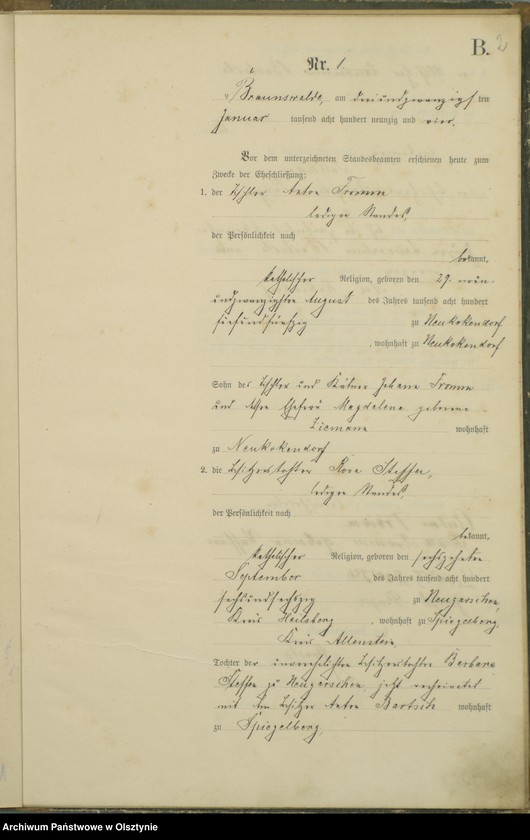 B. 2
Nr. 1.
Braunswalde, am dreiundzwanzigsten
Januar tausend acht hundert neunzig und vier.
Vor dem unterzeichneten Standesbeamten erschienen heute zum
Zwecke der Eheschließung:
1. der Tischler Anton Fromm
ledigen Standes,
der Persönlichkeit nach
bekannt,
katholischer Religion, geboren den 29. neun-
undzwanzigsten August des Jahres tausend acht hundert
fünfundfünfzig zu Neukokendorf
, wohnhaft zu Neukokendorf
Sohn des Tischler und Käthner Johann Fromm
und dessen Ehefrau Magdalena geborene
wohnhaft
zu Neukokendorf
2. die Besitzerstochter Rosa Steffen,
ledigen Standes,
der Persönlichkeit nach
bekannt,
katholischer Religion, geboren den sechszehnten
September des Jahres tausend acht hundert
sechsundsechszig zu Neugarschen,
Kreis Heilsberg, wohnhaft zu Spiegelberg,
Kreis Allenstein,
Tochter der unverehelichten Besitzerstochter Barbara
Steffen zu Neugarschen, jetzt verheiratet
mit dem Besitzer Anton Bartsch wohnhaft
zu Spiegelberg,
Archiwum Państwowe w Olsztynie